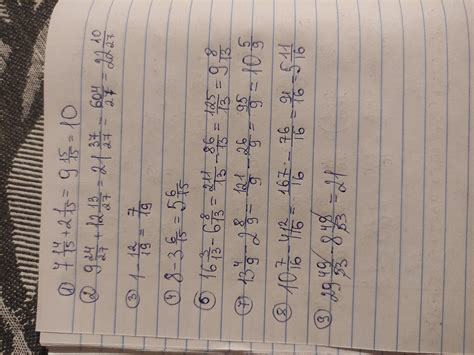 ① 7 14/15 + 2 1/15 = 9 15/15 = 10
② 9 24/27 + 12 13/27 = 21 37/27 = 604/27 = 22 10/27
③ 1 - 12/19 = 7/19
④ 8 - 3 6/15 = 5 6/15
⑥ 16 3/13 - 6 8/13 = 211/13 - 86/13 = 125/13 = 9 8/13
⑦ 13 4/9 - 2 8/9 = 121/9 - 26/9 = 95/9 = 10 5/9
⑧ 10 7/16 - 4 12/16 = 167/16 - 76/16 = 91/16 = 5 11/16
⑨ 29 49/53 - 8 49/53 = 21